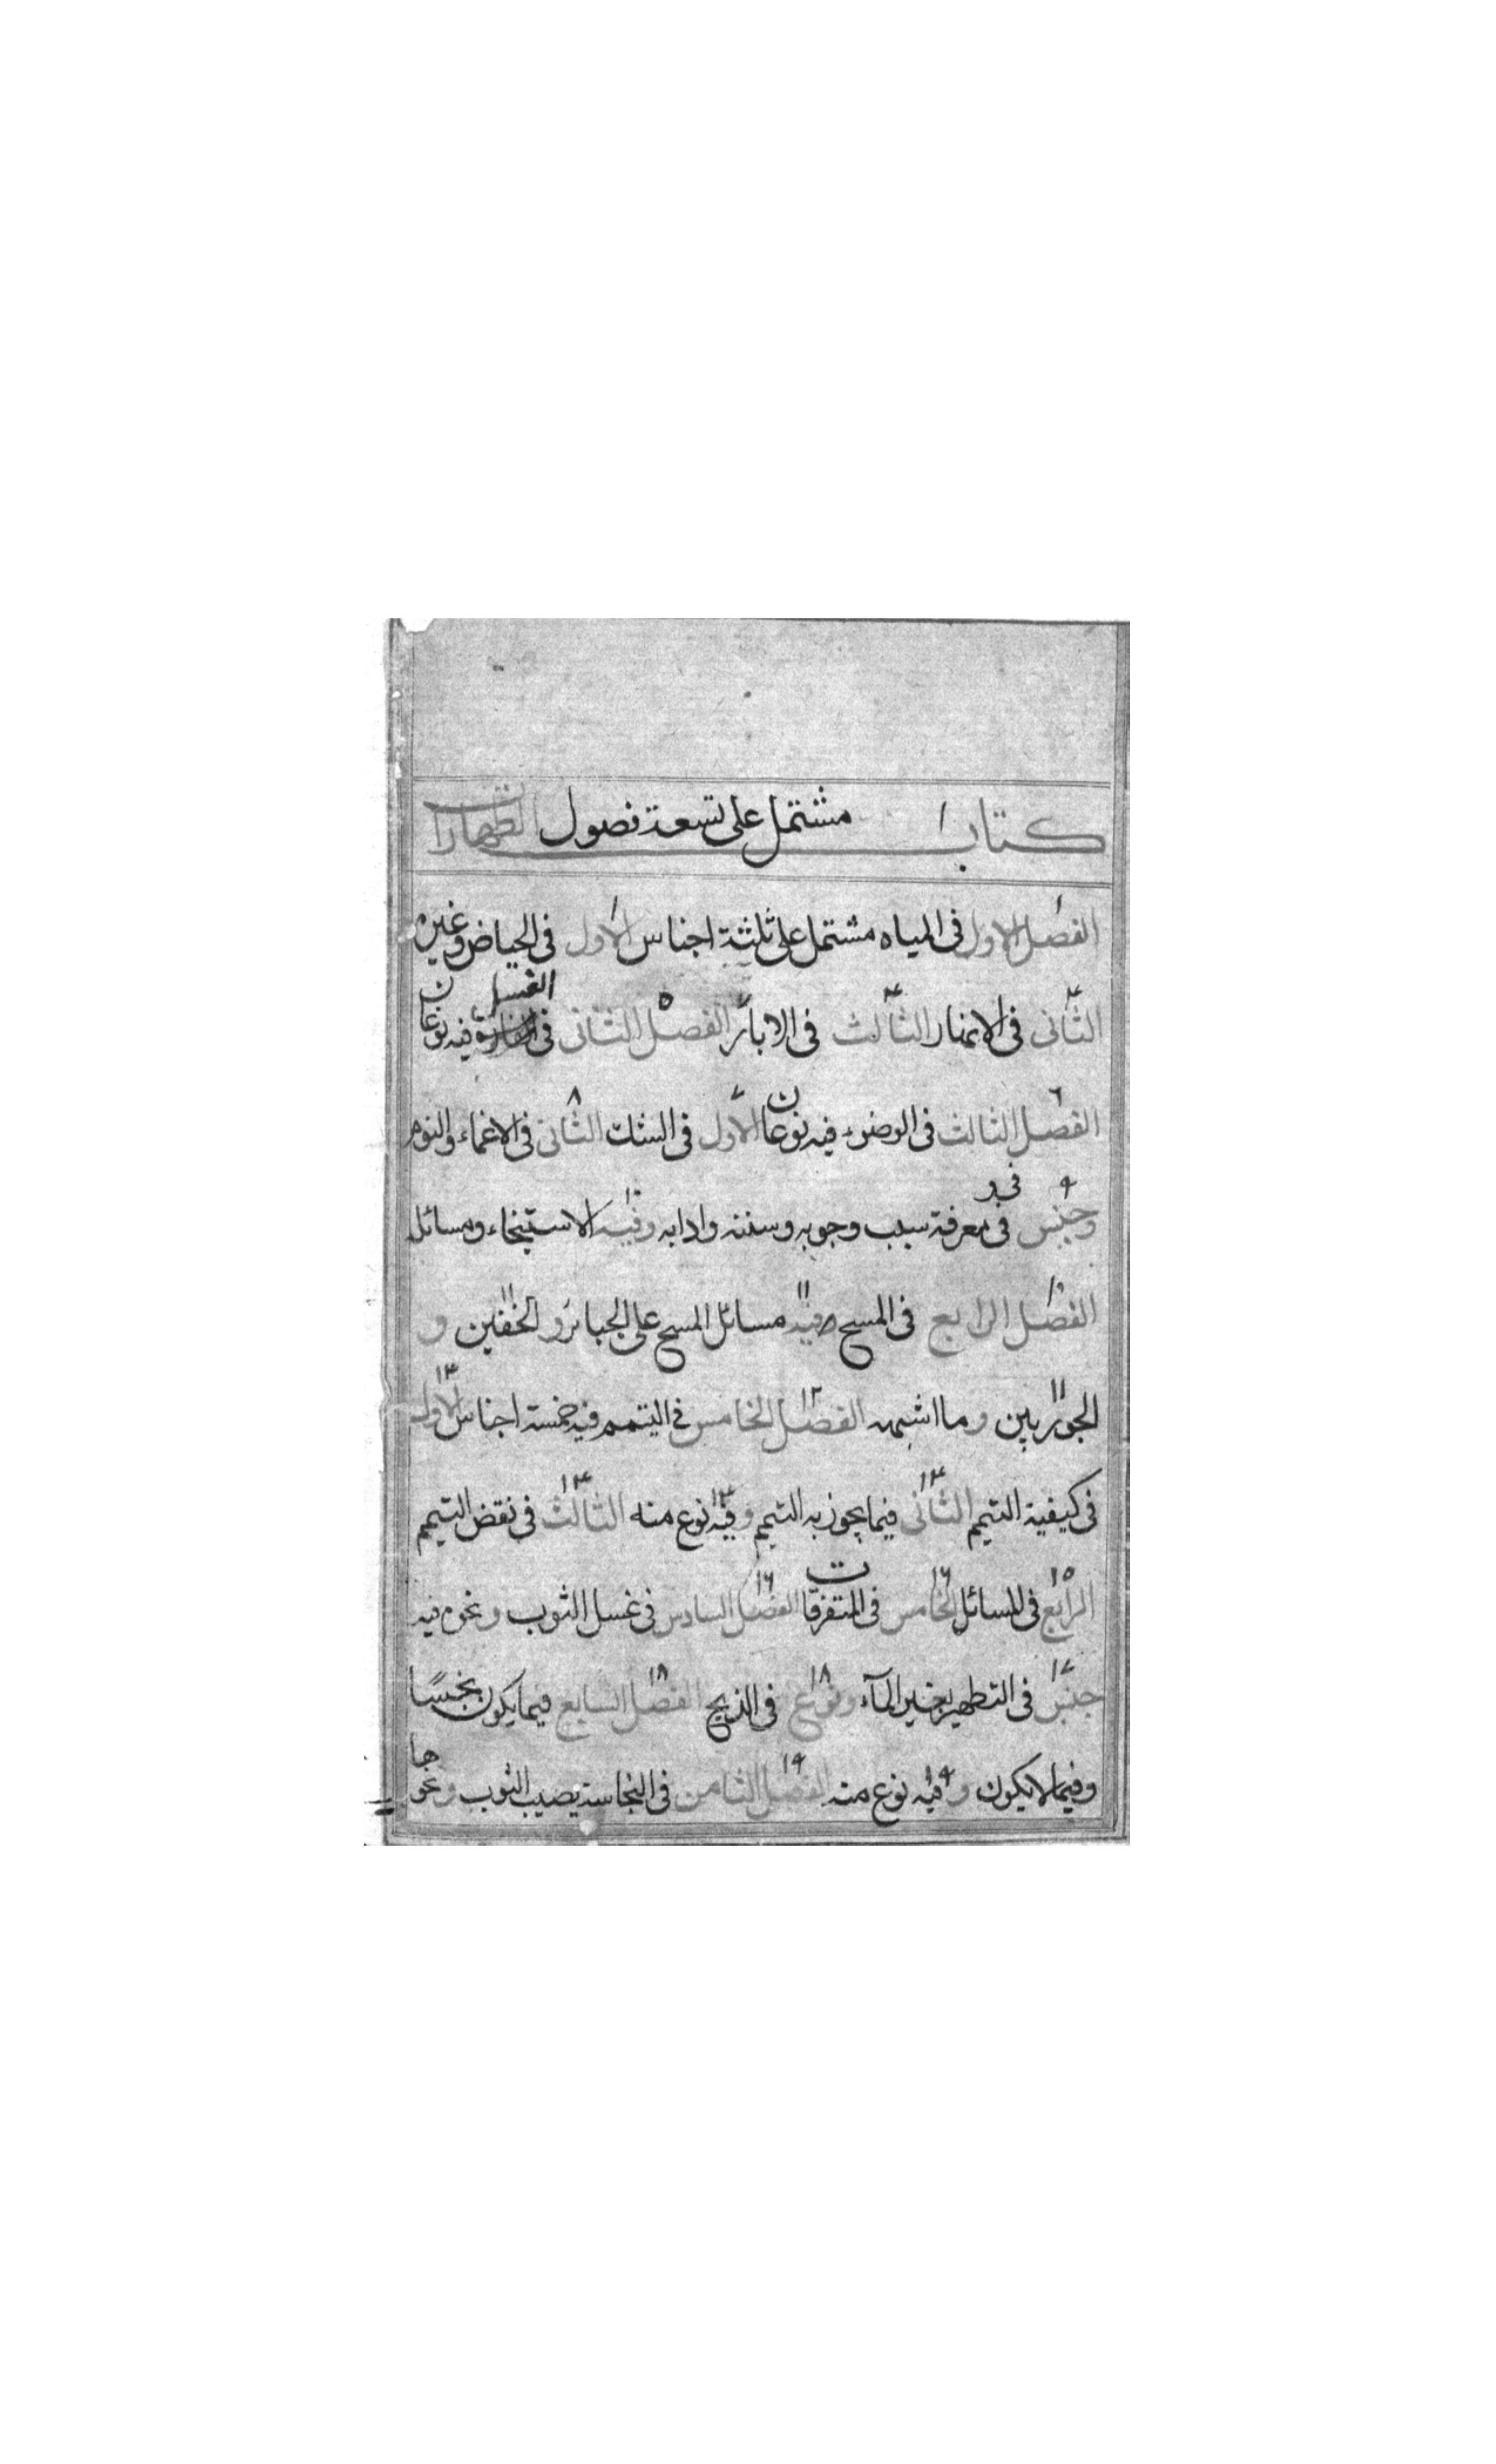 كتاب الطهارات مشتمل على تسعة فصول
الفصل الاول فى المياه مشتمل على ثلثة اجناس الاول فى الحياض وغيره
الثانى فى الانهار الثالث فى الابار الفصل الثانى فى الغسل فيه نوعان
الفصل الثالث فى الوضوء فيه نوعان الاول فى الشك الثانى فى الاغماء والنوم
وجنس فى معرفة سبب وجوبه وسننه وادابه وفيه الاستنجاء ومسائل
الفصل الرابع فى المسح وفيه مسائل المسح على الجبائر والخفين و
الجوربين وما اشبهه الفصل الخامس فى التيمم فيه خمسة اجناس الاول
فى كيفية التيمم الثانى فيما يجوز به التيمم وفيه نوع منه الثالث فى نقض التيمم
الرابع فى المسائل الخامس فى المتفرقات الفصل السادس فى غسل الثوب ونحوه فيه
جنس فى التطهير بغير المآء ونوع فى الذبح الفصل السابع فيما يكون نجسًا
وفيما لا يكون وفيه نوع منه الفصل الثامن فى النجاسة يصيب الثوب ونحوها